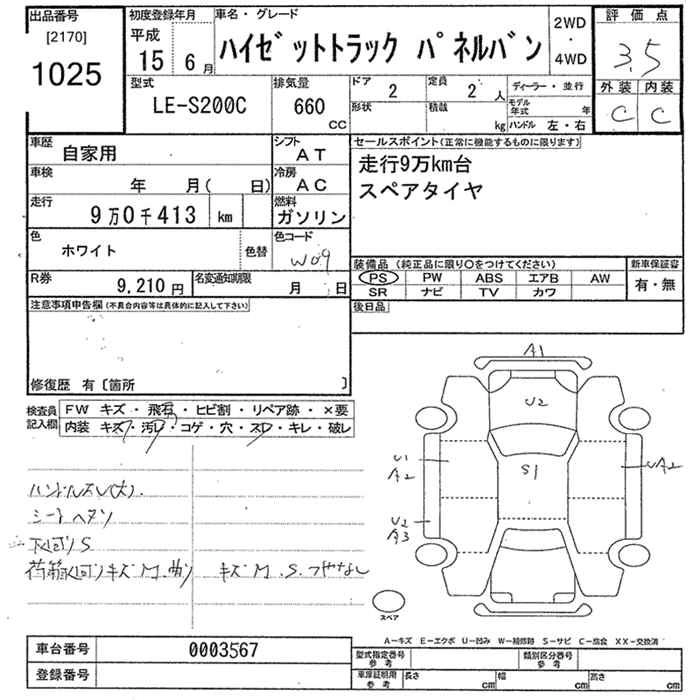 出品番号
[2170]
1025
初度登録年月
平成
15 6月
車名・グレード
ハイゼットトラック パネルバン
2WD
・
4WD
評価点
3.5
外装 内装
C C
型式
LE-S200C
排気量
660
CC
ドア
2
定員
2 人
形状
積載
kg
ディーラー・並行
モデル年式 年
ハンドル 左・右
車歴
自家用
シフト
AT
車検
年 月( 日)
冷房
AC
走行
9万0千413 km
燃料
ガソリン
色
ホワイト
色替
色コード
W09
R券
9,210円
名変通知期限
月 日
セールスポイント(正常に機能するものに限ります)
走行9万km台
スペアタイヤ
装備品 (純正品に限り○をつけてください)
PS PW ABS エアB AW
SR ナビ TV カワ
新車保証書
有・無
後日品
注意事項申告欄(不具合内容等は具体的に記入して下さい)
修復歴 有〔箇所 〕
検査員
記入欄
FW キズ・飛石・ヒビ割・リペア跡・×要
内装 キズ・汚レ・コゲ・穴・スレ・キレ・破レ
ハンドルスレ(大).
シートヘタリ
下回りS
キズM.S.つやなし
A1
U2
S1
U1
A2
UA2
U2
A3
スペア
A-キズ E-エクボ U-凹み W-補修跡 S-サビ C-腐食 XX-交換済
車台番号
0003567
登録番号
型式指定番号
参考
類別区分番号
参考
車庫証明用
参考
長さ cm
幅 cm
高さ cm